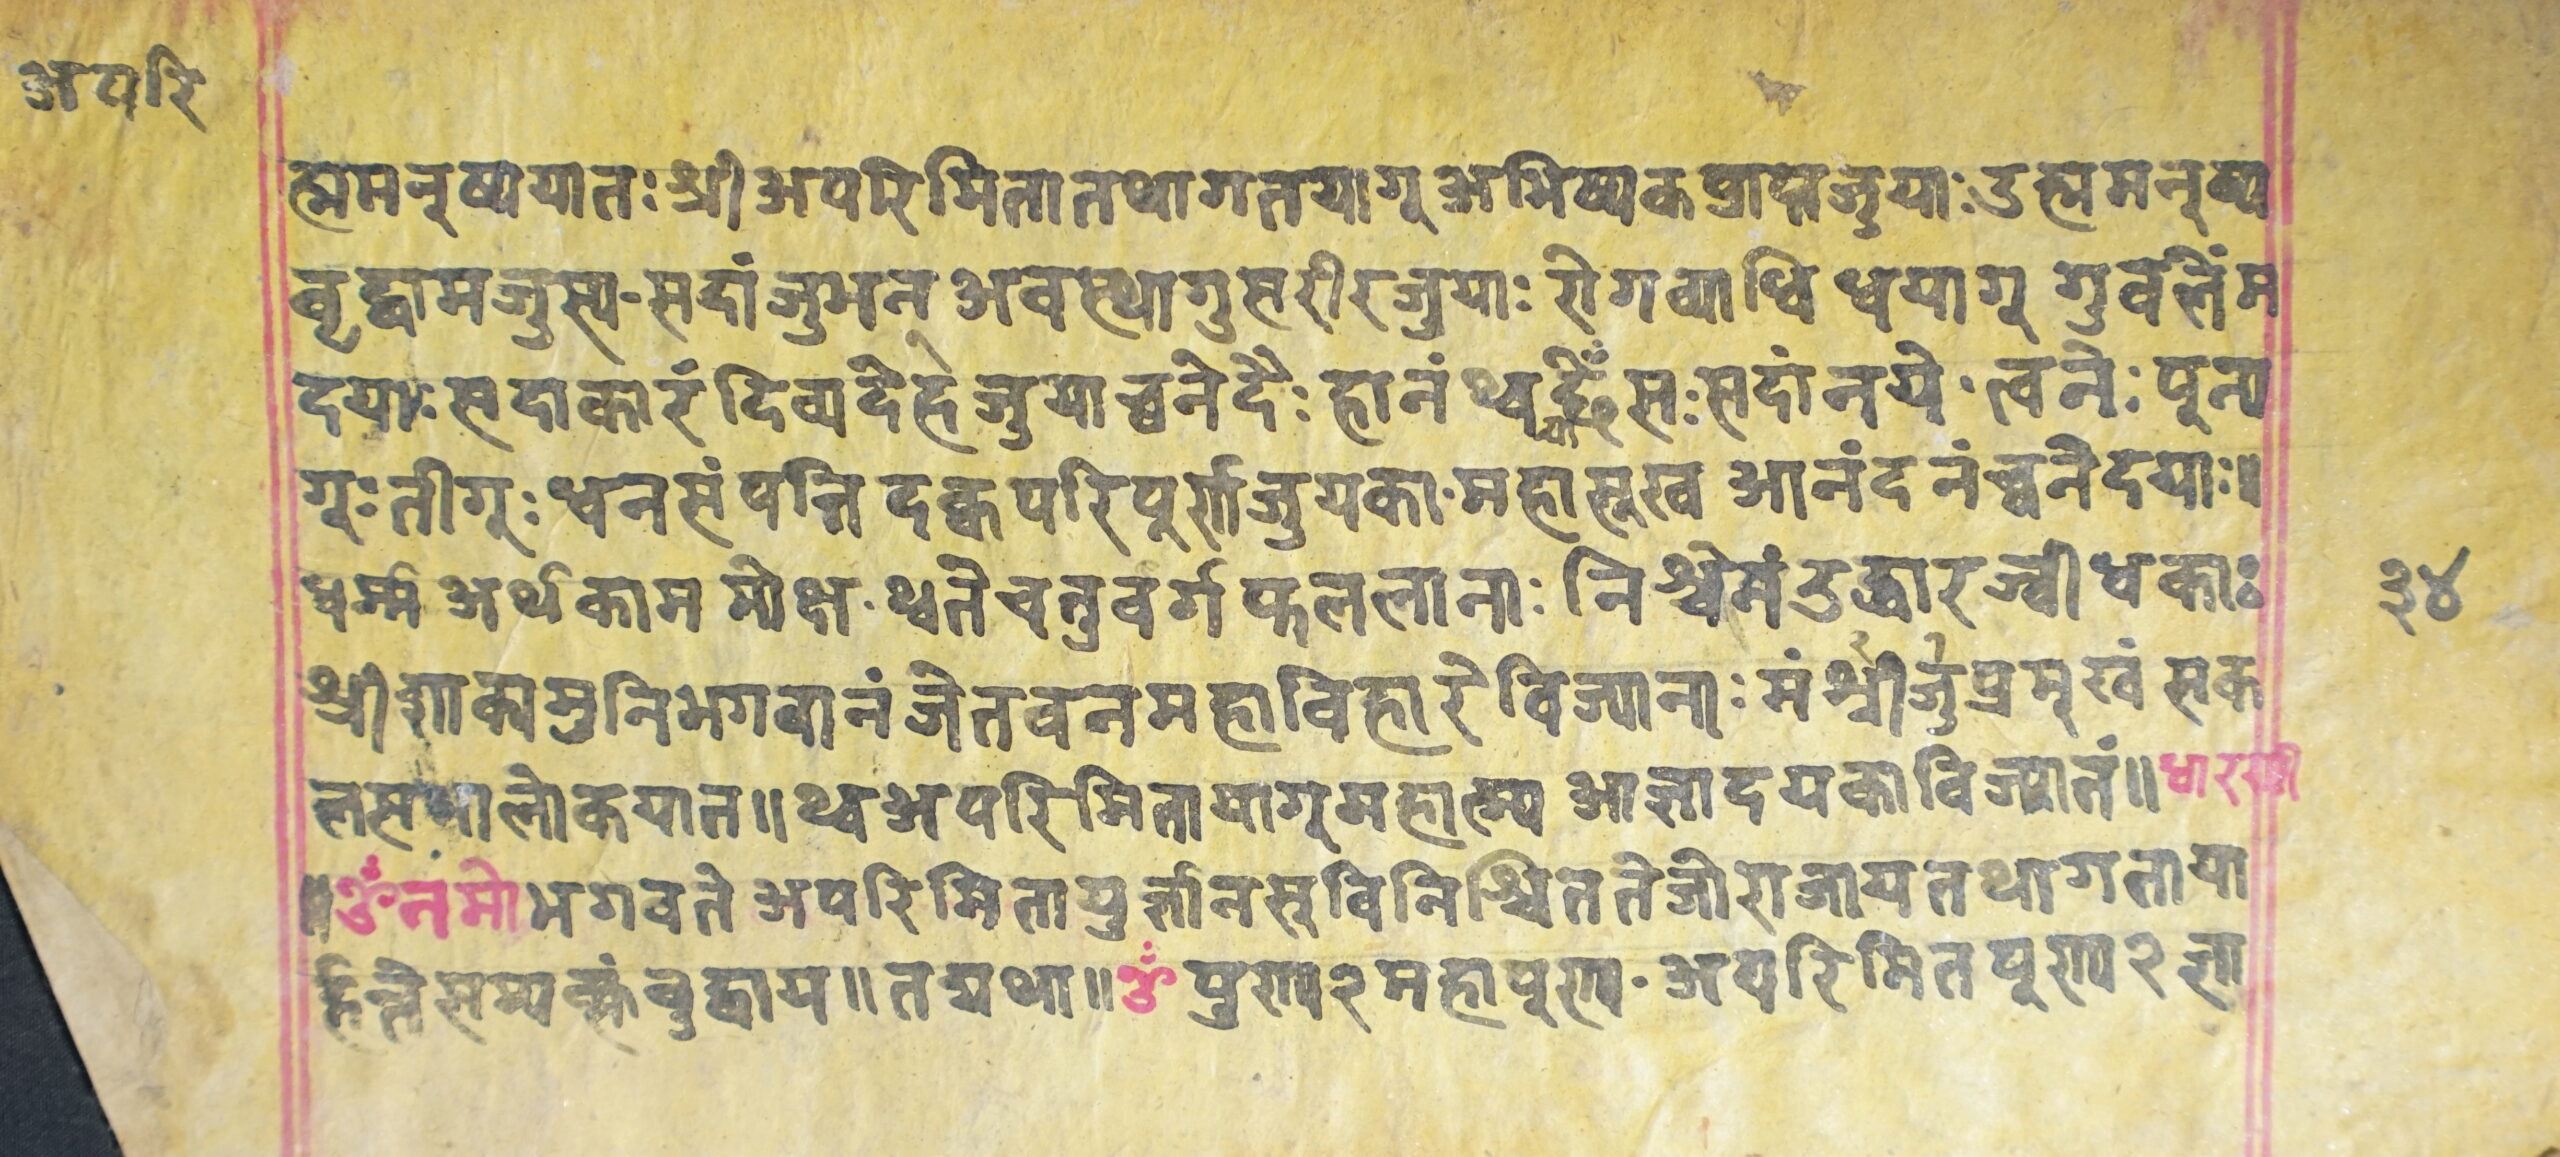 अपरि
ह्ममनूष्ययातः श्री अपरिमिता तथागतयागू अभिष्यक प्राप्तजुयाः उह्ममनूष्य
वृद्धामजुस्य ॰ सदां जुभन अवस्थागु सरीरजुयाः रोगव्याधि ध्वयागू गुवलें म
दयाः सदाकारं दिव्यदेह जुया च्वने दैः हानं सः सदां नये ॰ त्वनेः पून्य
गूः तीगूः धनसंपत्ति दक्व परिपूर्ण जुयका ॰ महासूख आनंदनं च्वने दयाः॥
धर्म्म अर्थ काम मोक्ष ॰ थ्वते चतुवर्ग फललानाः निश्चेमं उद्धार ज्वी धकाः
श्री शाक्यमुनि भगवानं जेतवन महाविहारे विज्यानाः मंश्रीजु प्रमूखं सक
लसभालोकयात॥ थ्व अपरिमितायागू महात्म्य आज्ञादयका विज्यातं॥ धारणी
॥ ॐ नमो भगवते अपरिमितायुर्ज्ञानसूविनिश्चिततेजोराजाय तथागताया
र्हन्ते सम्यक्सं बुद्धाय॥ तद्यथा॥ ॐ पुण्य २ महापूण्य ॰ अपरिमितपूण्य २ ज्ञा
३४